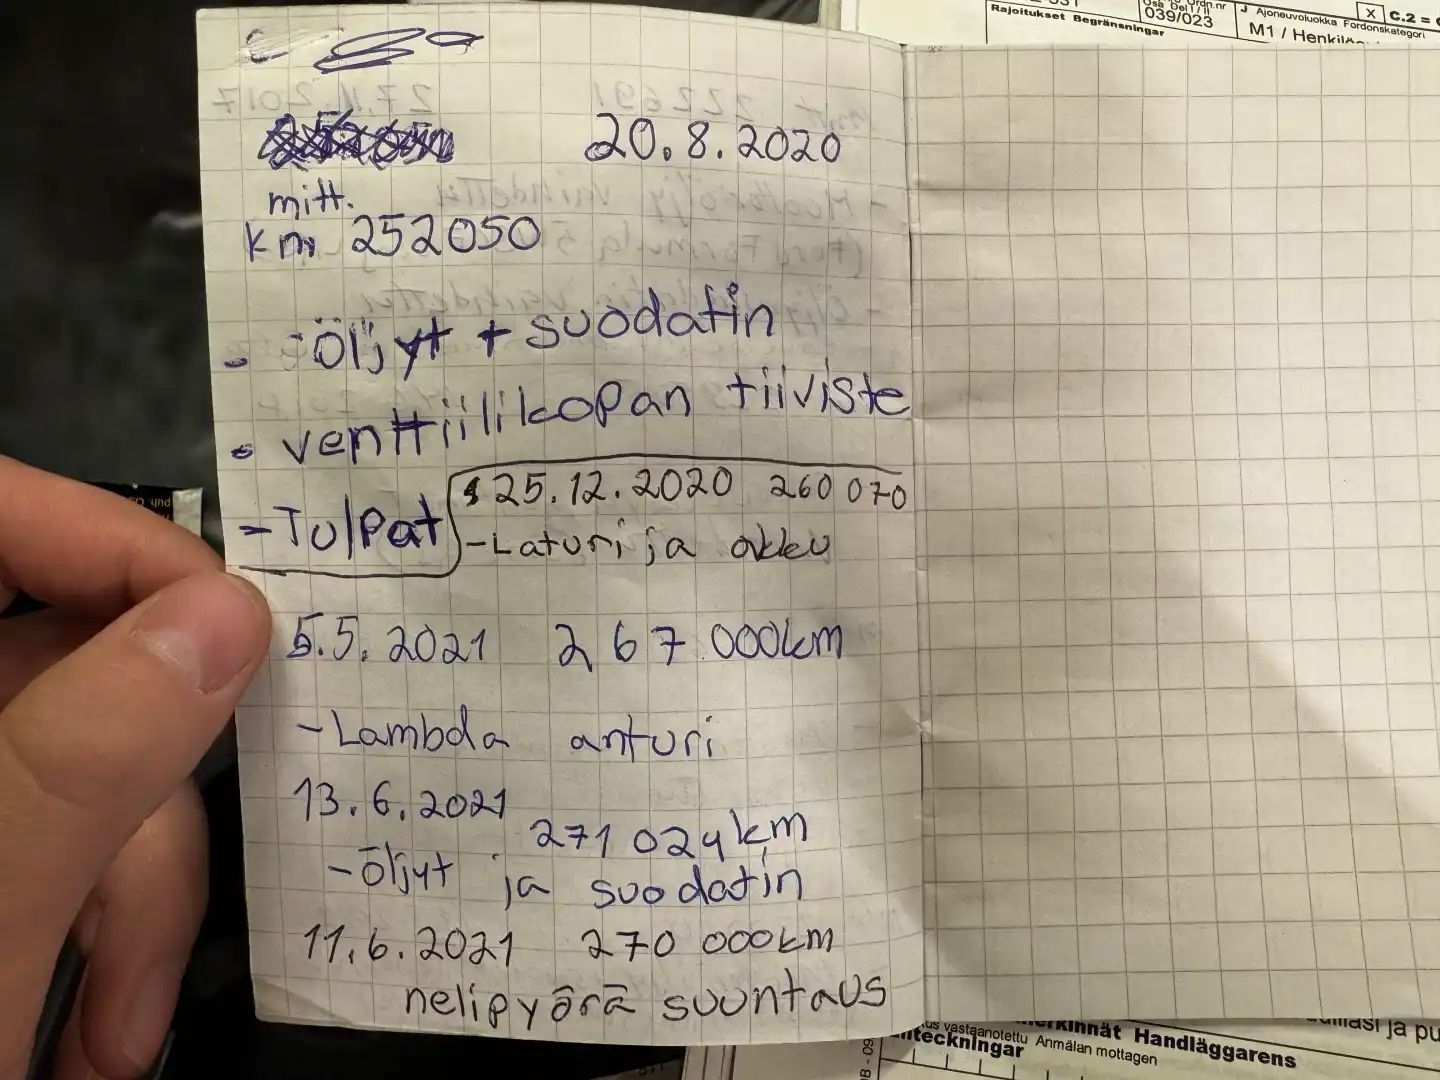 Rajoitukset Begränsningar
039/023
J Ajoneuvoluokka Fordonskategori
M1 /
X C.2 =
20.8.2020
mitt.
km 252050
- öljyt + suodatin
- venttiilikopan tiiviste
- Tulpat
25.12.2020 260 070
- Laturi ja akku
5.5.2021 267 000km
- Lambda anturi
13.6.2021
271 024km
- öljyt ja suodatin
11.6.2021 270 000km
nelipyörä suuntaus
vastaanotettu Anmälan mottagen
Handläggarens